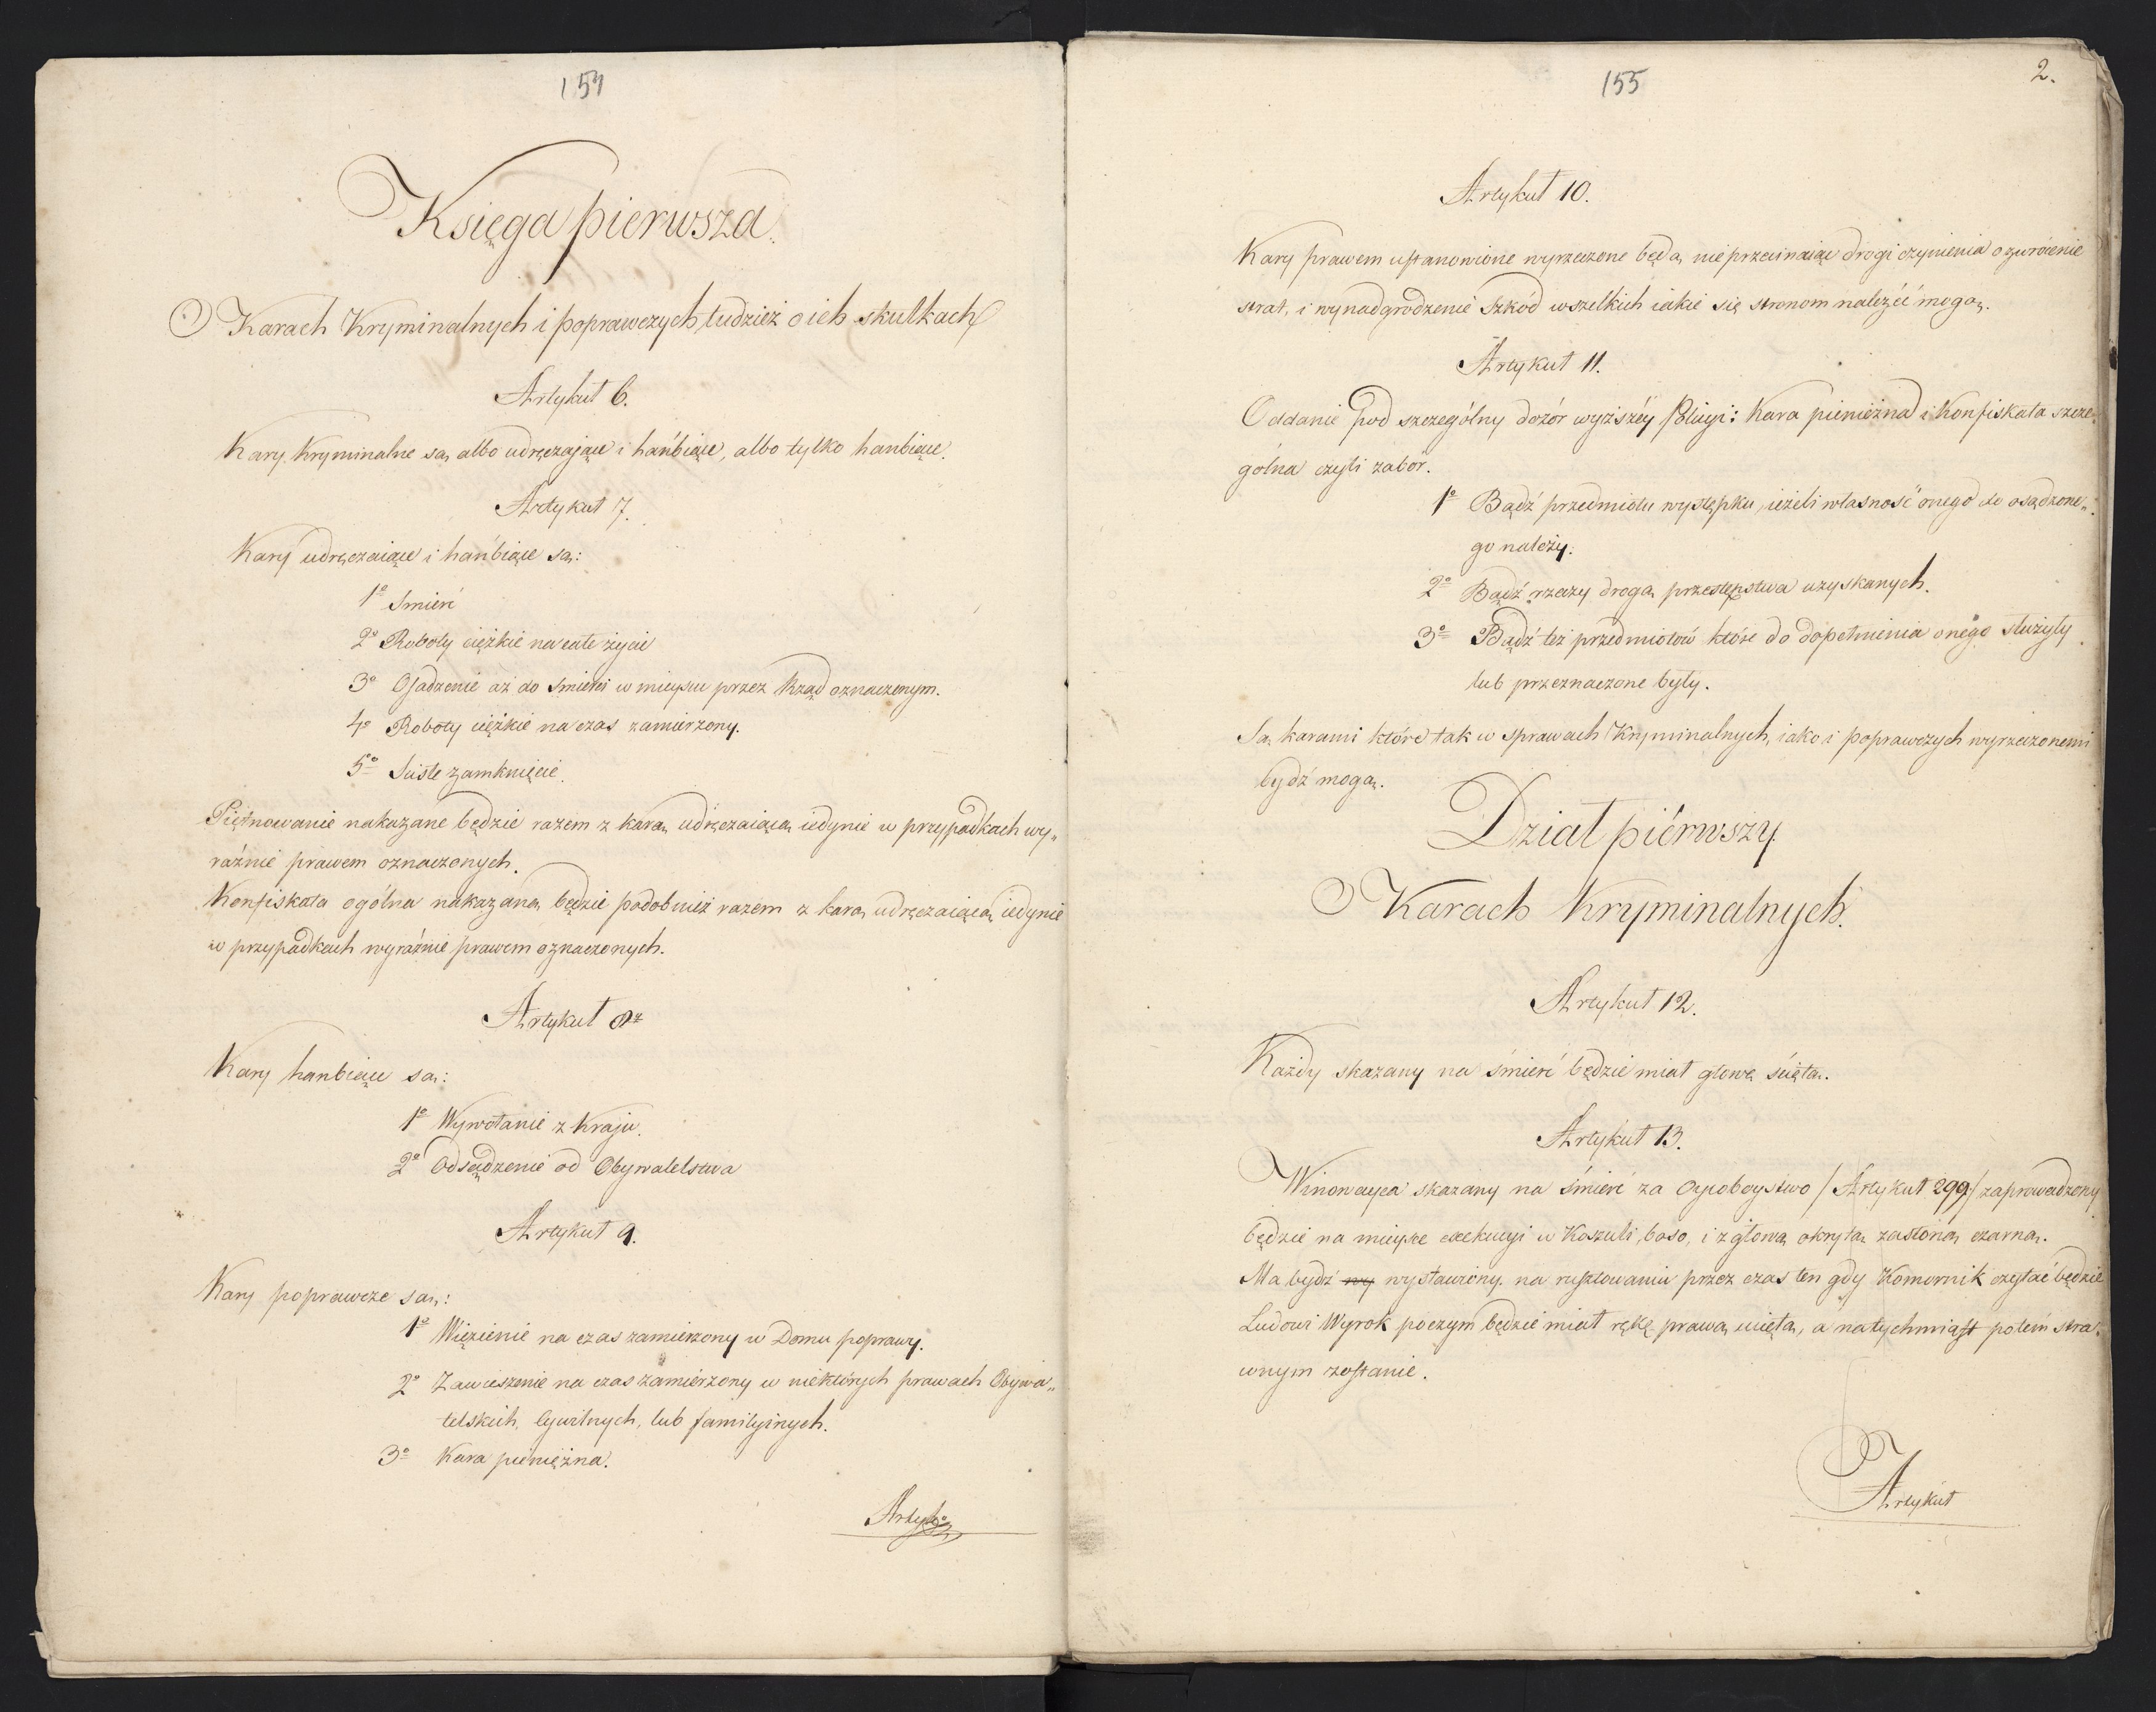 154
Księga pierwsza.
O Karach Kryminalnych i poprawczych, tudzież o ich skutkach
Artykuł 6.
Kary Kryminalne są albo udręczające i hańbiące, albo tylko hanbiące.
Artykuł 7.
Kary udręczaiące i hańbiące są:
1º Smierć
2º Roboty ciężkie na całe życie
3º Osadzenie aż do smierci w mieyscu przez Rząd oznaczonym.
4º Roboty ciężkie na czas zamierzony.
5º Sciste zamknięcie.
Piętnowanie nakazane będzie razem z karą udręczaiącą iedynie w przypadkach wy„
raźnie prawem oznaczonych.
Konfiskata ogólna nakazaną będzie podobnież razem z karą udręczaiącą iedynie
w przypadkach wyraźnie prawem oznaczonych.
Artykuł 8º
Kary hanbiące są:
1º Wywołanie z Kraju.
2º Odsądzenie od Obywatelstwa
Artykuł 9.
Kary poprawcze są:
1º Więzienie na czas zamierzony w Domu poprawy.
2º Zawieszenie na czas zamierzony w niektórych prawach Obywa„
telskich, Cywilnych, lub familyinych.
3º Kara pieniężna.
155
2.
Artykuł 10.
Kary prawem ustanowione wyrzeczone będą, nie przecinaiąc drogi czynienia o zwrócenie
strat, i wynadgrodzenie Szkód wszelkich iakie się stronom należéć mogą.
Artykuł 11.
Oddanie pod szczególny dozór wyższéy Policyi: Kara pieniężna i Konfiskata szcze„
gólna czyli zabór.
1º Bądź przedmiotu występku, ieżeli własność onego do osądzone„
go należy.
2º Bądź rzeczy drogą przestępstwa uzyskanych.
3º Bądź też przedmiotów które do dopełnienia onego służyły
lub przeznaczone były.
Są karami które tak w sprawach Kryminalnych, iako i poprawczych wyrzeczonemi
bydź mogą.
Dział piérwszy
O Karach Kryminalnych.
Artykuł 12.
Każdy skazany na śmierć będzie miał głowę ściętą.
Artykuł 13.
Winowayca skazany na śmierć za Oycobóystwo /Artykuł 299/ zaprowadzony
będzie na mieysce exekucyi w Koszuli, boso, i z głową okrytą zasłoną czarną.
Ma bydź wy wystawiony na rusztowaniu przez czas ten gdy Komornik czytać będzie
Ludowi Wyrok poczym będzie miał rękę prawą uciętą, a natychmiast potém stra„
conym zostanie.
Artykuł